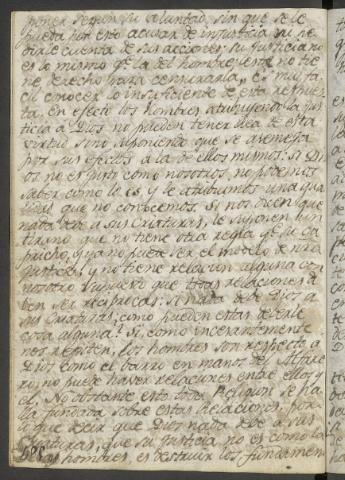 poner segun su voluntad, sin que se le
pueda por esto acusar de injusticia ni pe-
dirle cuenta de sus acciones; su justicia no
es lo mismo q.e la del hombre, este no tie-
ne derecho para censurarla. Es muy fa-
cil conocer lo insuficiente de esta respues-
ta, en efecto los hombres atribuyendo la jus-
ticia á Dios no pueden tener idea de esta
virtud sino suponiendo que se asemeja
por sus efectos á la de ellos mismos. Si Di-
os no es justo como nosotros, no podemos
saber como lo es, y le atribuimos una qua-
lidad que no conocemos. Si nos dicen que
nada debe a sus Criaturas, le suponen un
tirano que no tiene otra regla q.e su ca-
pricho, q.e ya no puede ser el modelo de nra
justicia, y no tiene relacion alguna con
nosotros supuesto que todas relaciones de-
ben ser reciprocas: Si nada debe Dios á
sus Criaturas, ¿como pueden estas deberle
cosa alguna? Si, como incesantemente
nos repiten, los hombres son respecto á
Dios como el barro en manos del Alfare-
ro, no puede haver relaciones entre ellos y
el. No obstante esto toda Religion se ha-
lla fundada sobre estas relaciones, por
lo que decir que Dios nada debe á sus
Criaturas, que su Justicia no es como la
de los hombres, es destruir los fundamen-